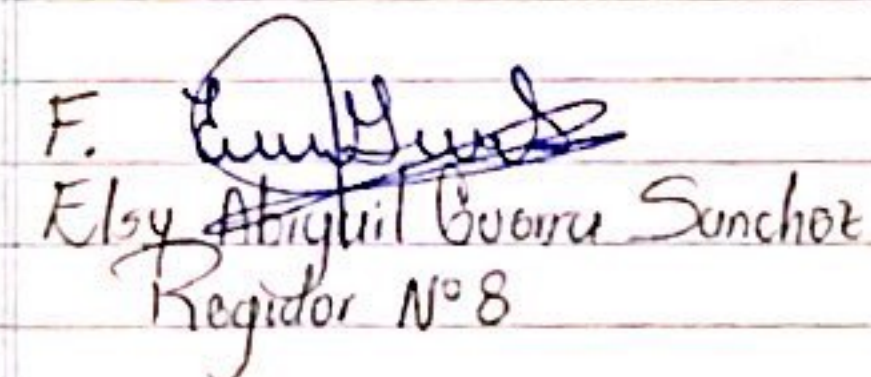 F.
Elsy Abiguil Guerra Sanchez
Regidor N° 8